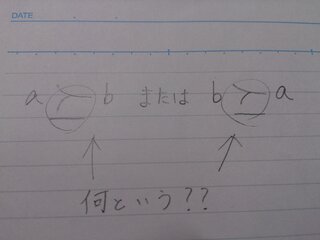 DATE
a ⪯ b または b ⪰ a
何という??